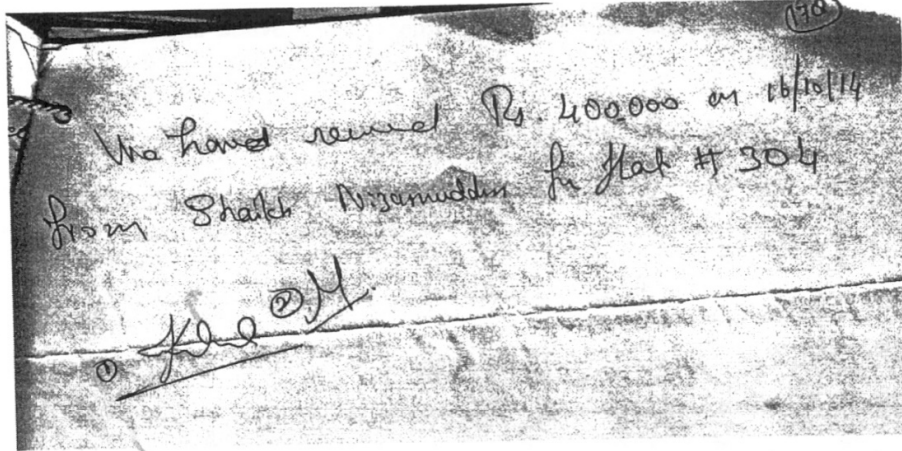 1708
We haved received Rs. 400,000 on 16/10/14
from Shaikh Nizamuddin for flat # 304
① ②